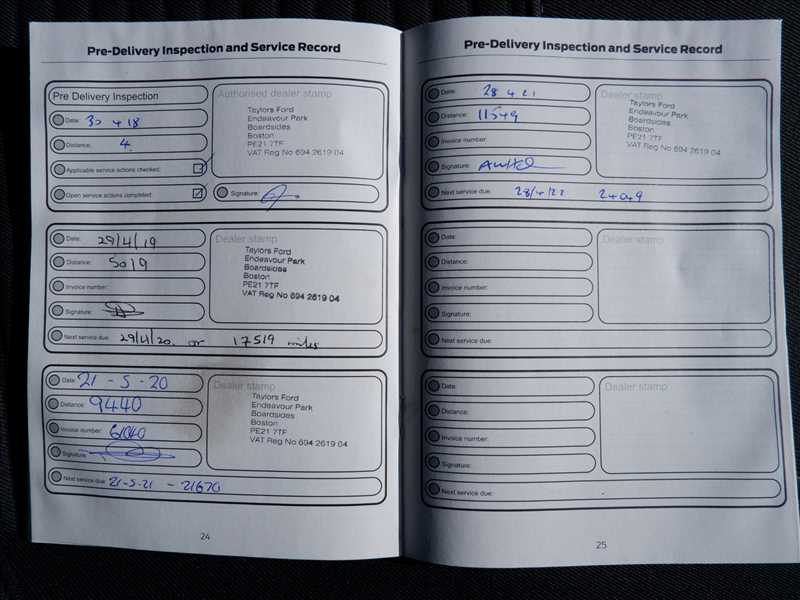 Pre-Delivery Inspection and Service Record
Pre Delivery Inspection
Date: 30 4 18
Distance: 4
Applicable service actions checked:
Open service actions completed:
Authorised dealer stamp
Taylors Ford
Endeavour Park
Boardsides
Boston
PE21 7TF
VAT Reg No 694 2619 04
Signature:
Date: 29/4/19
Distance: 5019
Invoice number:
Signature:
Dealer stamp
Taylors Ford
Endeavour Park
Boardsides
Boston
PE21 7TF
VAT Reg No 694 2619 04
Next service due: 29/4/20. or 17519 miles
Date: 21-5-20
Distance: 9440
Invoice number:
Signature:
Dealer stamp
Taylors Ford
Endeavour Park
Boardsides
Boston
PE21 7TF
VAT Reg No 694 2619 04
Next service due: 21-5-21 - 21670
24
Pre-Delivery Inspection and Service Record
Date: 28 4 21
Distance: 11549
Invoice number:
Signature:
Dealer stamp
Taylors Ford
Endeavour Park
Boardsides
Boston
PE21 7TF
VAT Reg No 694 2619 04
Next service due: 28/4/22
Date:
Distance:
Invoice number:
Signature:
Dealer stamp
Next service due:
Date:
Distance:
Invoice number:
Signature:
Dealer stamp
Next service due:
25